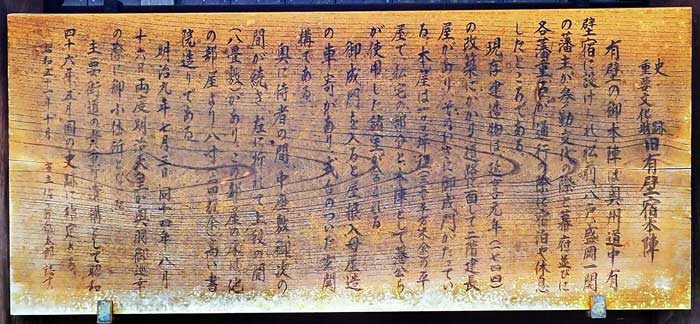 史跡
重要文化財 旧有壁宿本陣
有壁の御本陣は奥州道中有
壁宿に設けられ松前八戸盛岡一関
の藩主が参勤交代の際と幕府並びに
各藩重臣が通行の際に宿泊や休息
したところである
現存建造物は延享元年(一七四四)
の改築にかかり道路に面して二階建長
屋があり そのむきに御成門がたってい
る 本屋は一〇二坪程(三三六平方米余)の平
屋で私宅の部分と本陣として藩公ら
が使用した諸室が
御成門を入ると屋根入母屋造
の車寄があり 式台のついた玄関
構である
奥に侍者の間 中座敷 御次の
間が続き左に折れて上段の間
八畳敷)があり この部屋の床は他
の部屋より八寸(二四糎余)高い書
院造りである
明治九年七月三日 同十四年八月
十六日両度明治天皇が奥羽御巡幸
の際に御小休所となる
主要街道の貴重な遺構として昭和
四十六年五月国の史跡に指定さる
昭和五二年十月